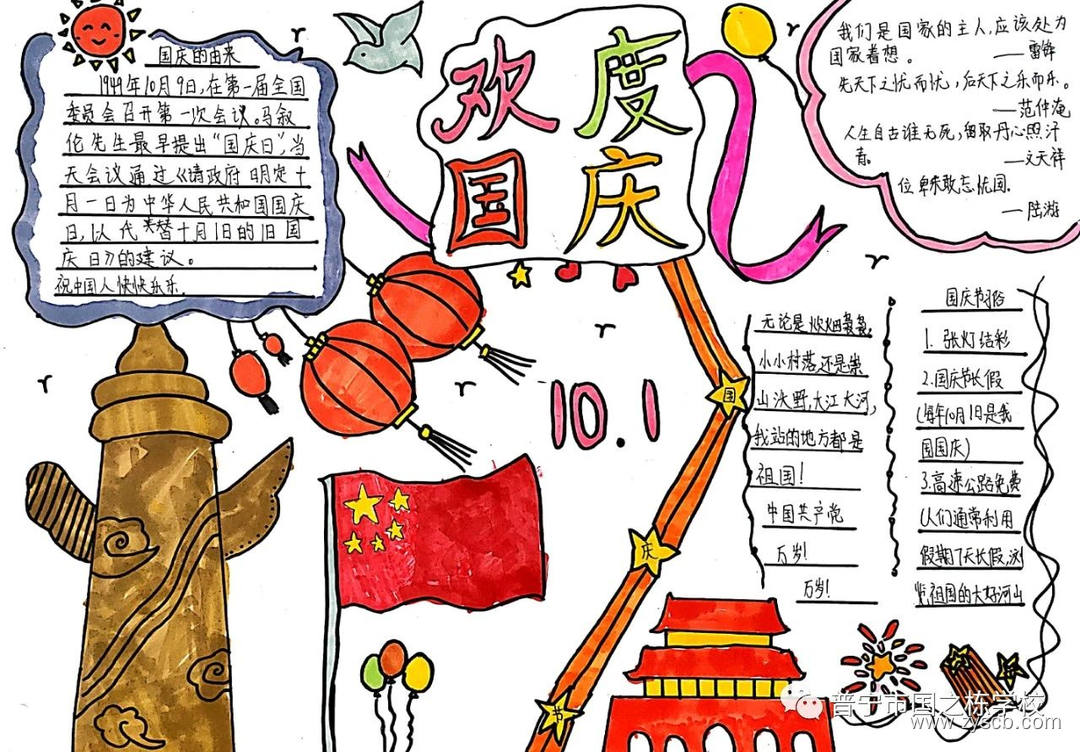 国庆的由来
1949年10月9日,在第一届全国
委员会召开第一次会议。马叙
伦先生最早提出“国庆日”,当
天会议通过《请政府明定十
月一日为中华人民共和国国庆
日,以代替十月1日的旧国
庆日》的建议。
祝中国人快快乐乐.
欢度
国庆
我们是国家的主人,应该处为
国家着想。
——雷锋
先天下之忧而忧,后天下之乐而乐。
——范仲淹
人生自古谁无死,留取丹心照汗
青。
——文天祥
位卑未敢忘忧国。
—陆游
10.1
国
庆
书
无论是炊烟袅袅,
小小村落还是崇
山沃野,大江大河,
我站的地方都是
祖国!
中国共产党
万岁!
万岁!
国庆节习俗
1. 张灯结彩
2.国庆节长假
(每年10月1日是我
国国庆)
3.高速公路免费
人们通常利用
假期7天长假,浏
览祖国的大好河山
普宁市国之栋学校
www.zyscb.com